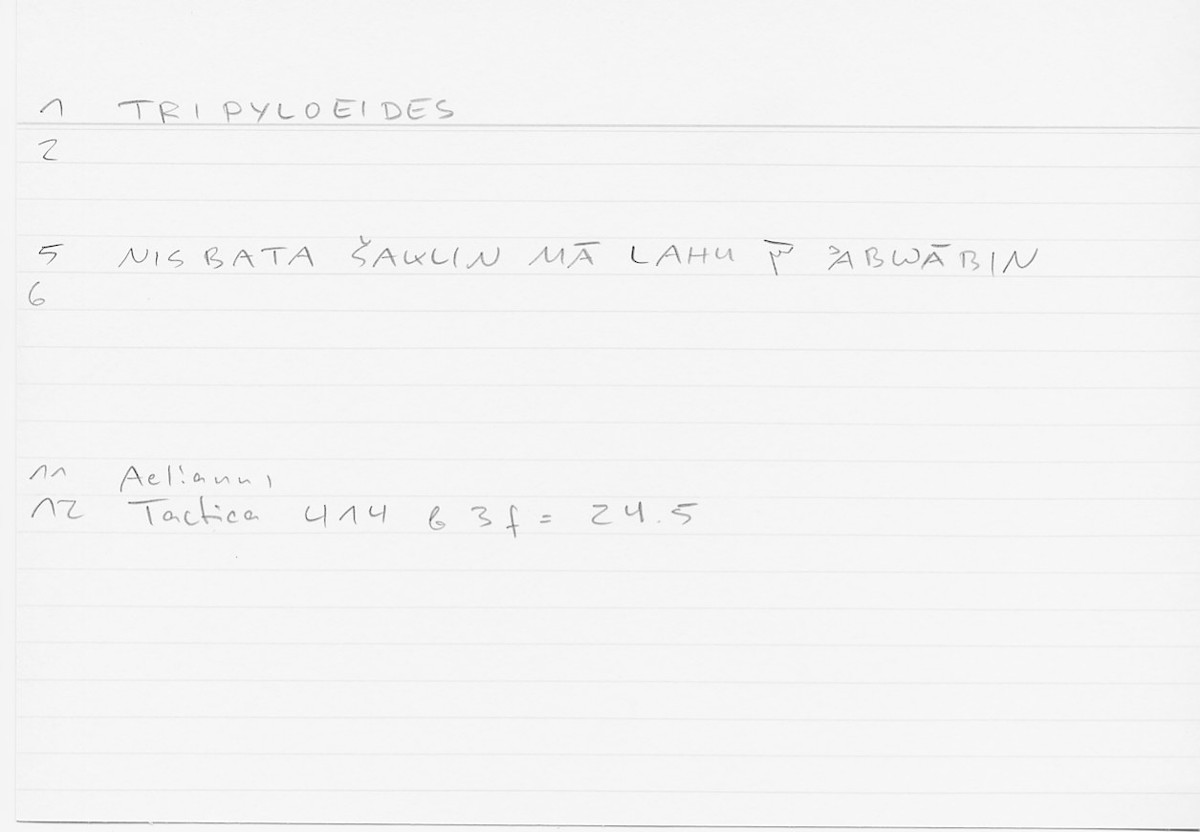 1 TRIPYLOEIDES
2
5 NISBATA ŠAKLIN MĀ LAHU ʾABWĀBIN
6
11 Aelianus
12 Tactica 414 b 3 f = 24.5